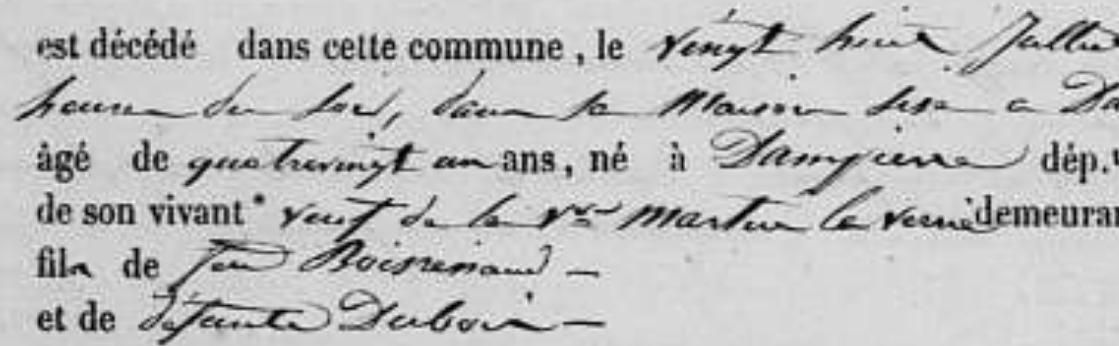 est décédé dans cette commune, le vingt huit Juillet
heures du soir, dans sa Maison sise a
âgé de quatrevingt un ans, né à Dampierre dép.
de son vivant* veuf de la Martin demeura
fils de feu Boisrenaud —
et de défunte Dubois —